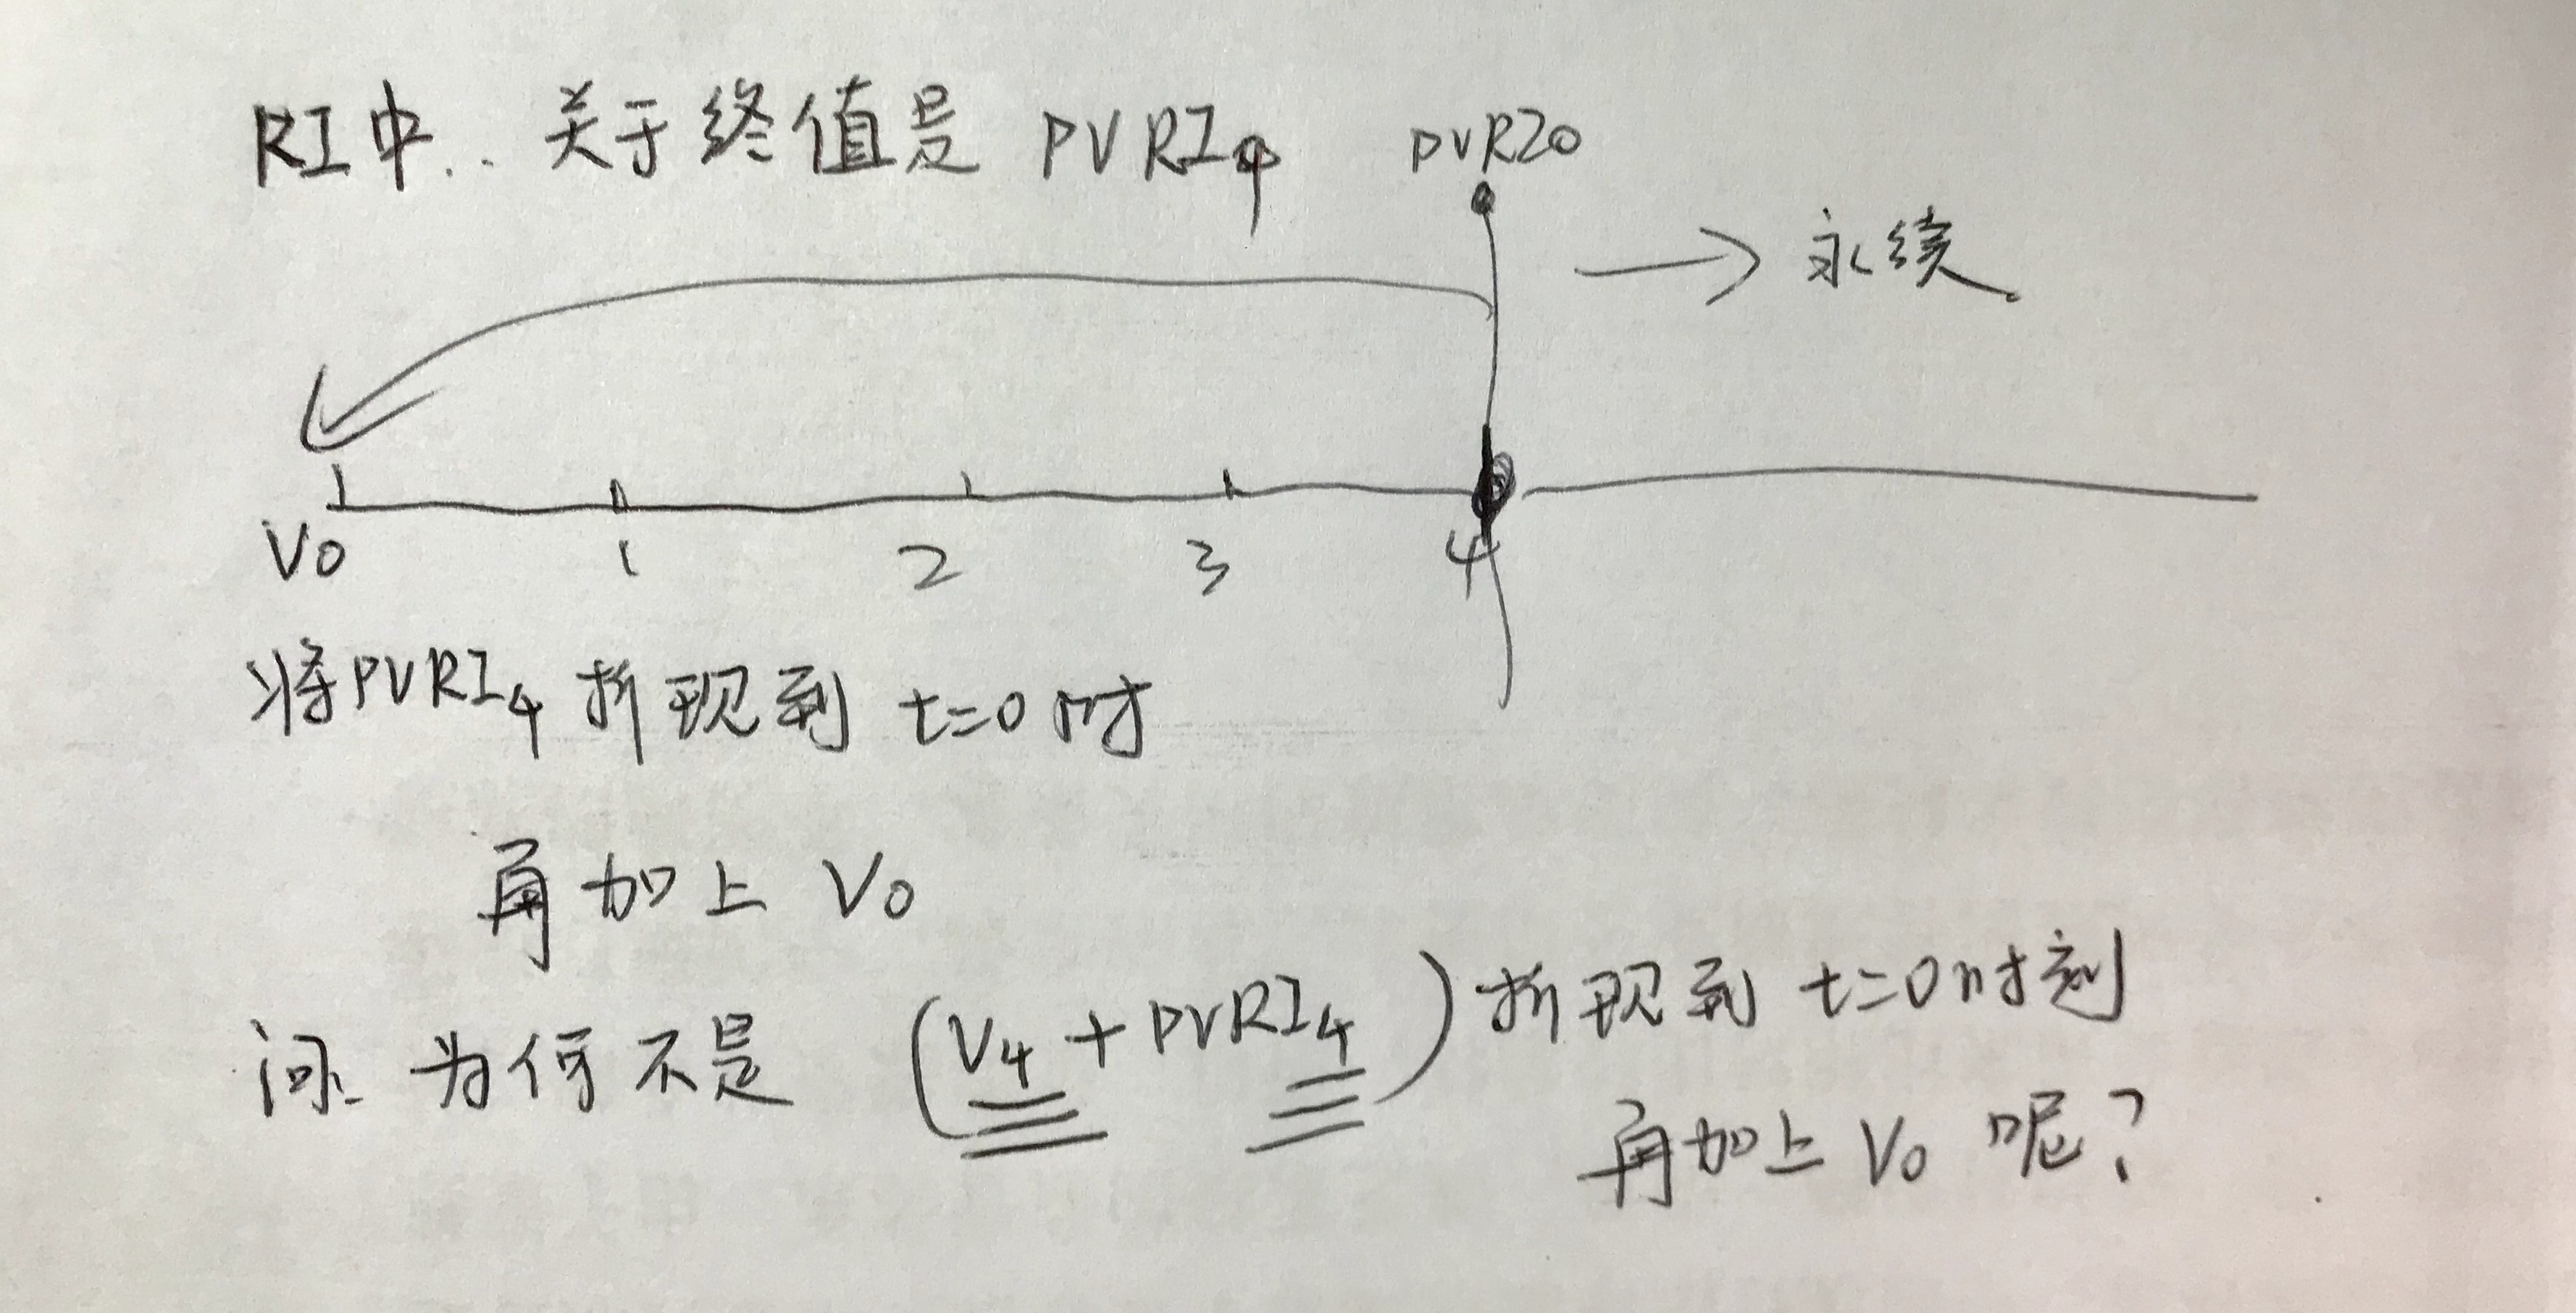 RI中.. 关于终值是 PVRI4 PVRI0
→ 永续
V0 1 2 3 4
将PVRI4 折现到 t=0 时
再加上 V0
问. 为何不是 (V4 + PVRI4) 折现到 t=0时刻
再加上 V0 呢?